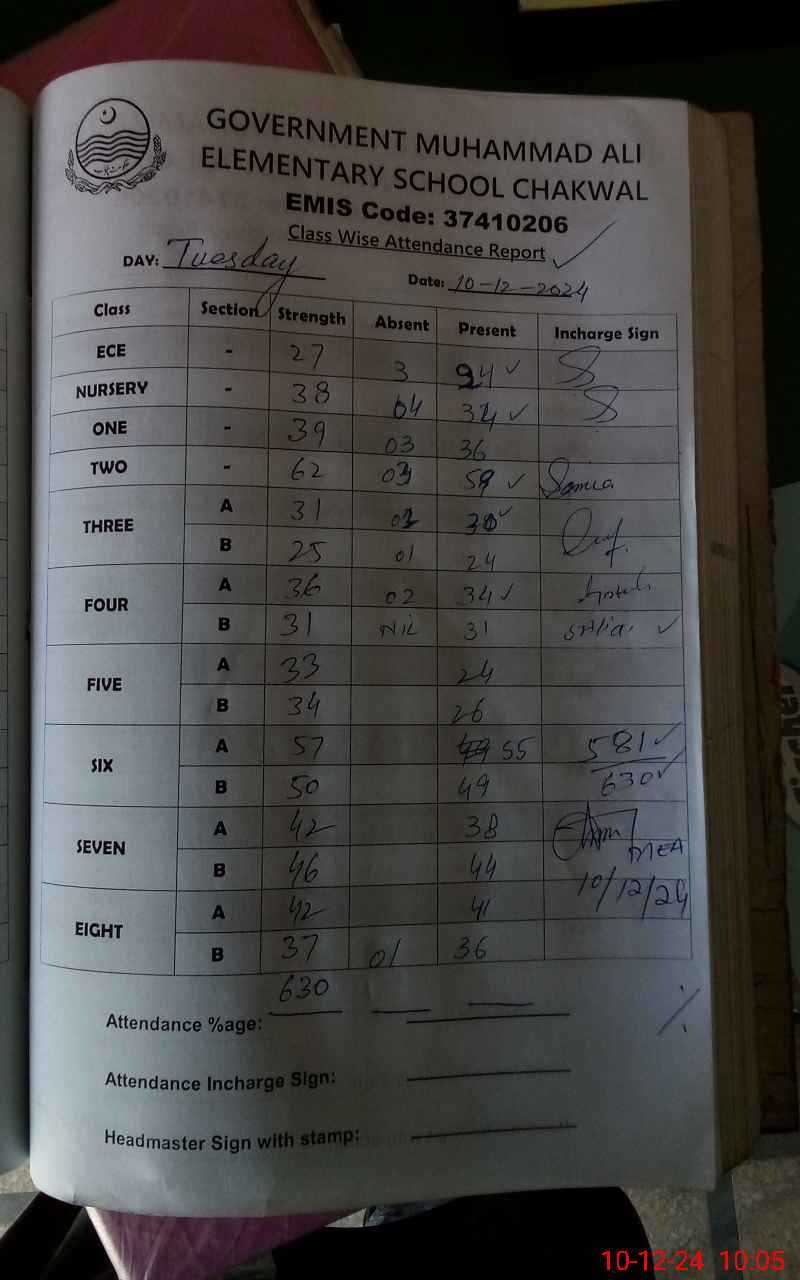 GOVERNMENT MUHAMMAD ALI
ELEMENTARY SCHOOL CHAKWAL
EMIS Code: 37410206
Class Wise Attendance Report
DAY: Tuesday Date: 10-12-2024
Class Section Strength Absent Present Incharge Sign
ECE - 27 3 24
NURSERY - 38 04 34
ONE - 39 03 36
TWO - 62 03 59 Samia
THREE A 31 01 30
B 25 01 24
FOUR A 36 02 34
B 31 Nil 31
FIVE A 33 24
B 34 26
SIX A 57 55 581
B 50 49 630
SEVEN A 42 38
B 46 44 MEA
EIGHT A 42 41 10/12/24
B 37 01 36
630
Attendance %age: %
Attendance Incharge Sign:
Headmaster Sign with stamp:
10-12-24 10:05